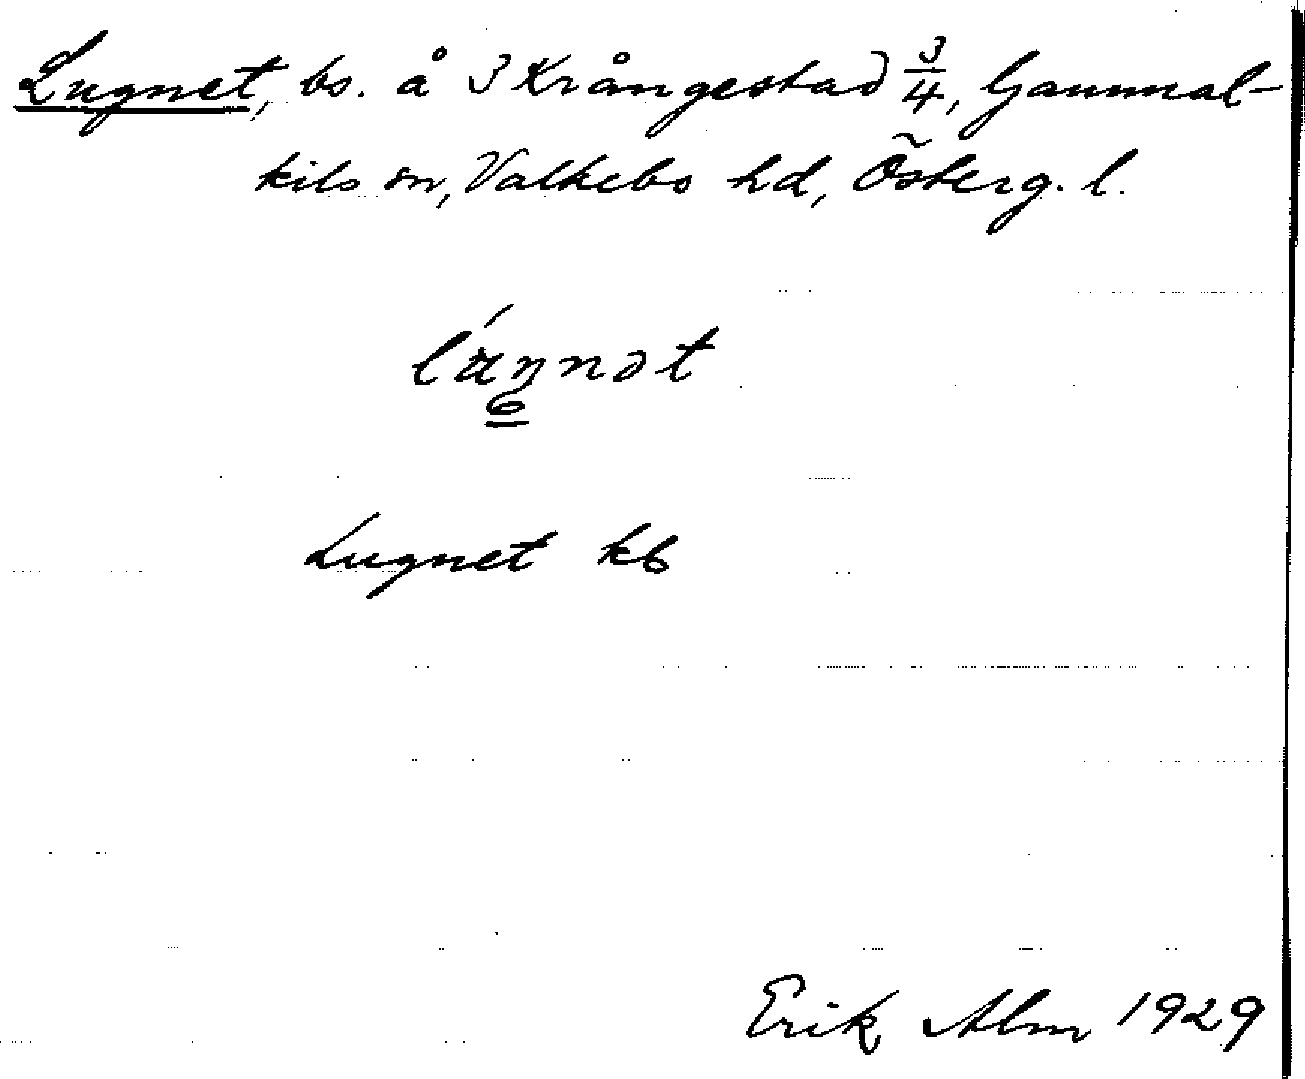 Lugnet, bs. å 3 Krångestad 3/4, Gammal-
kils sn, Valkebo hd, Österg. l.
Lugnet kb
Erik Alm 1929